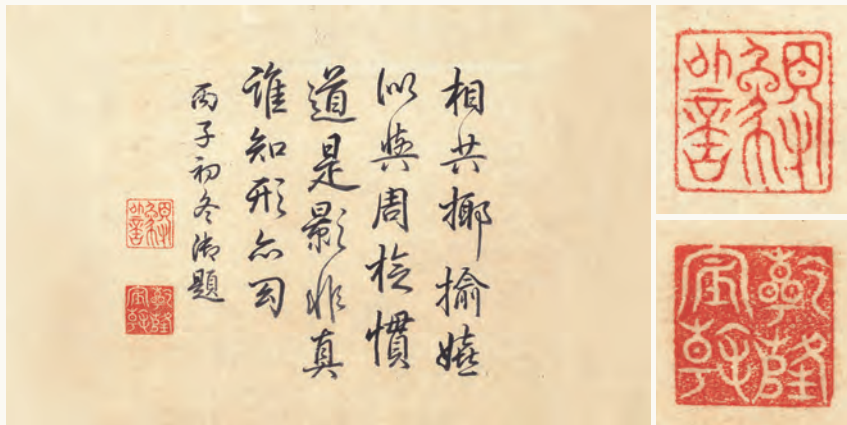 相共揶揄嬉
似與周旋慣
道是影非真
誰知形亦幻
丙子初冬御題
乾隆宸翰
乾隆宸翰